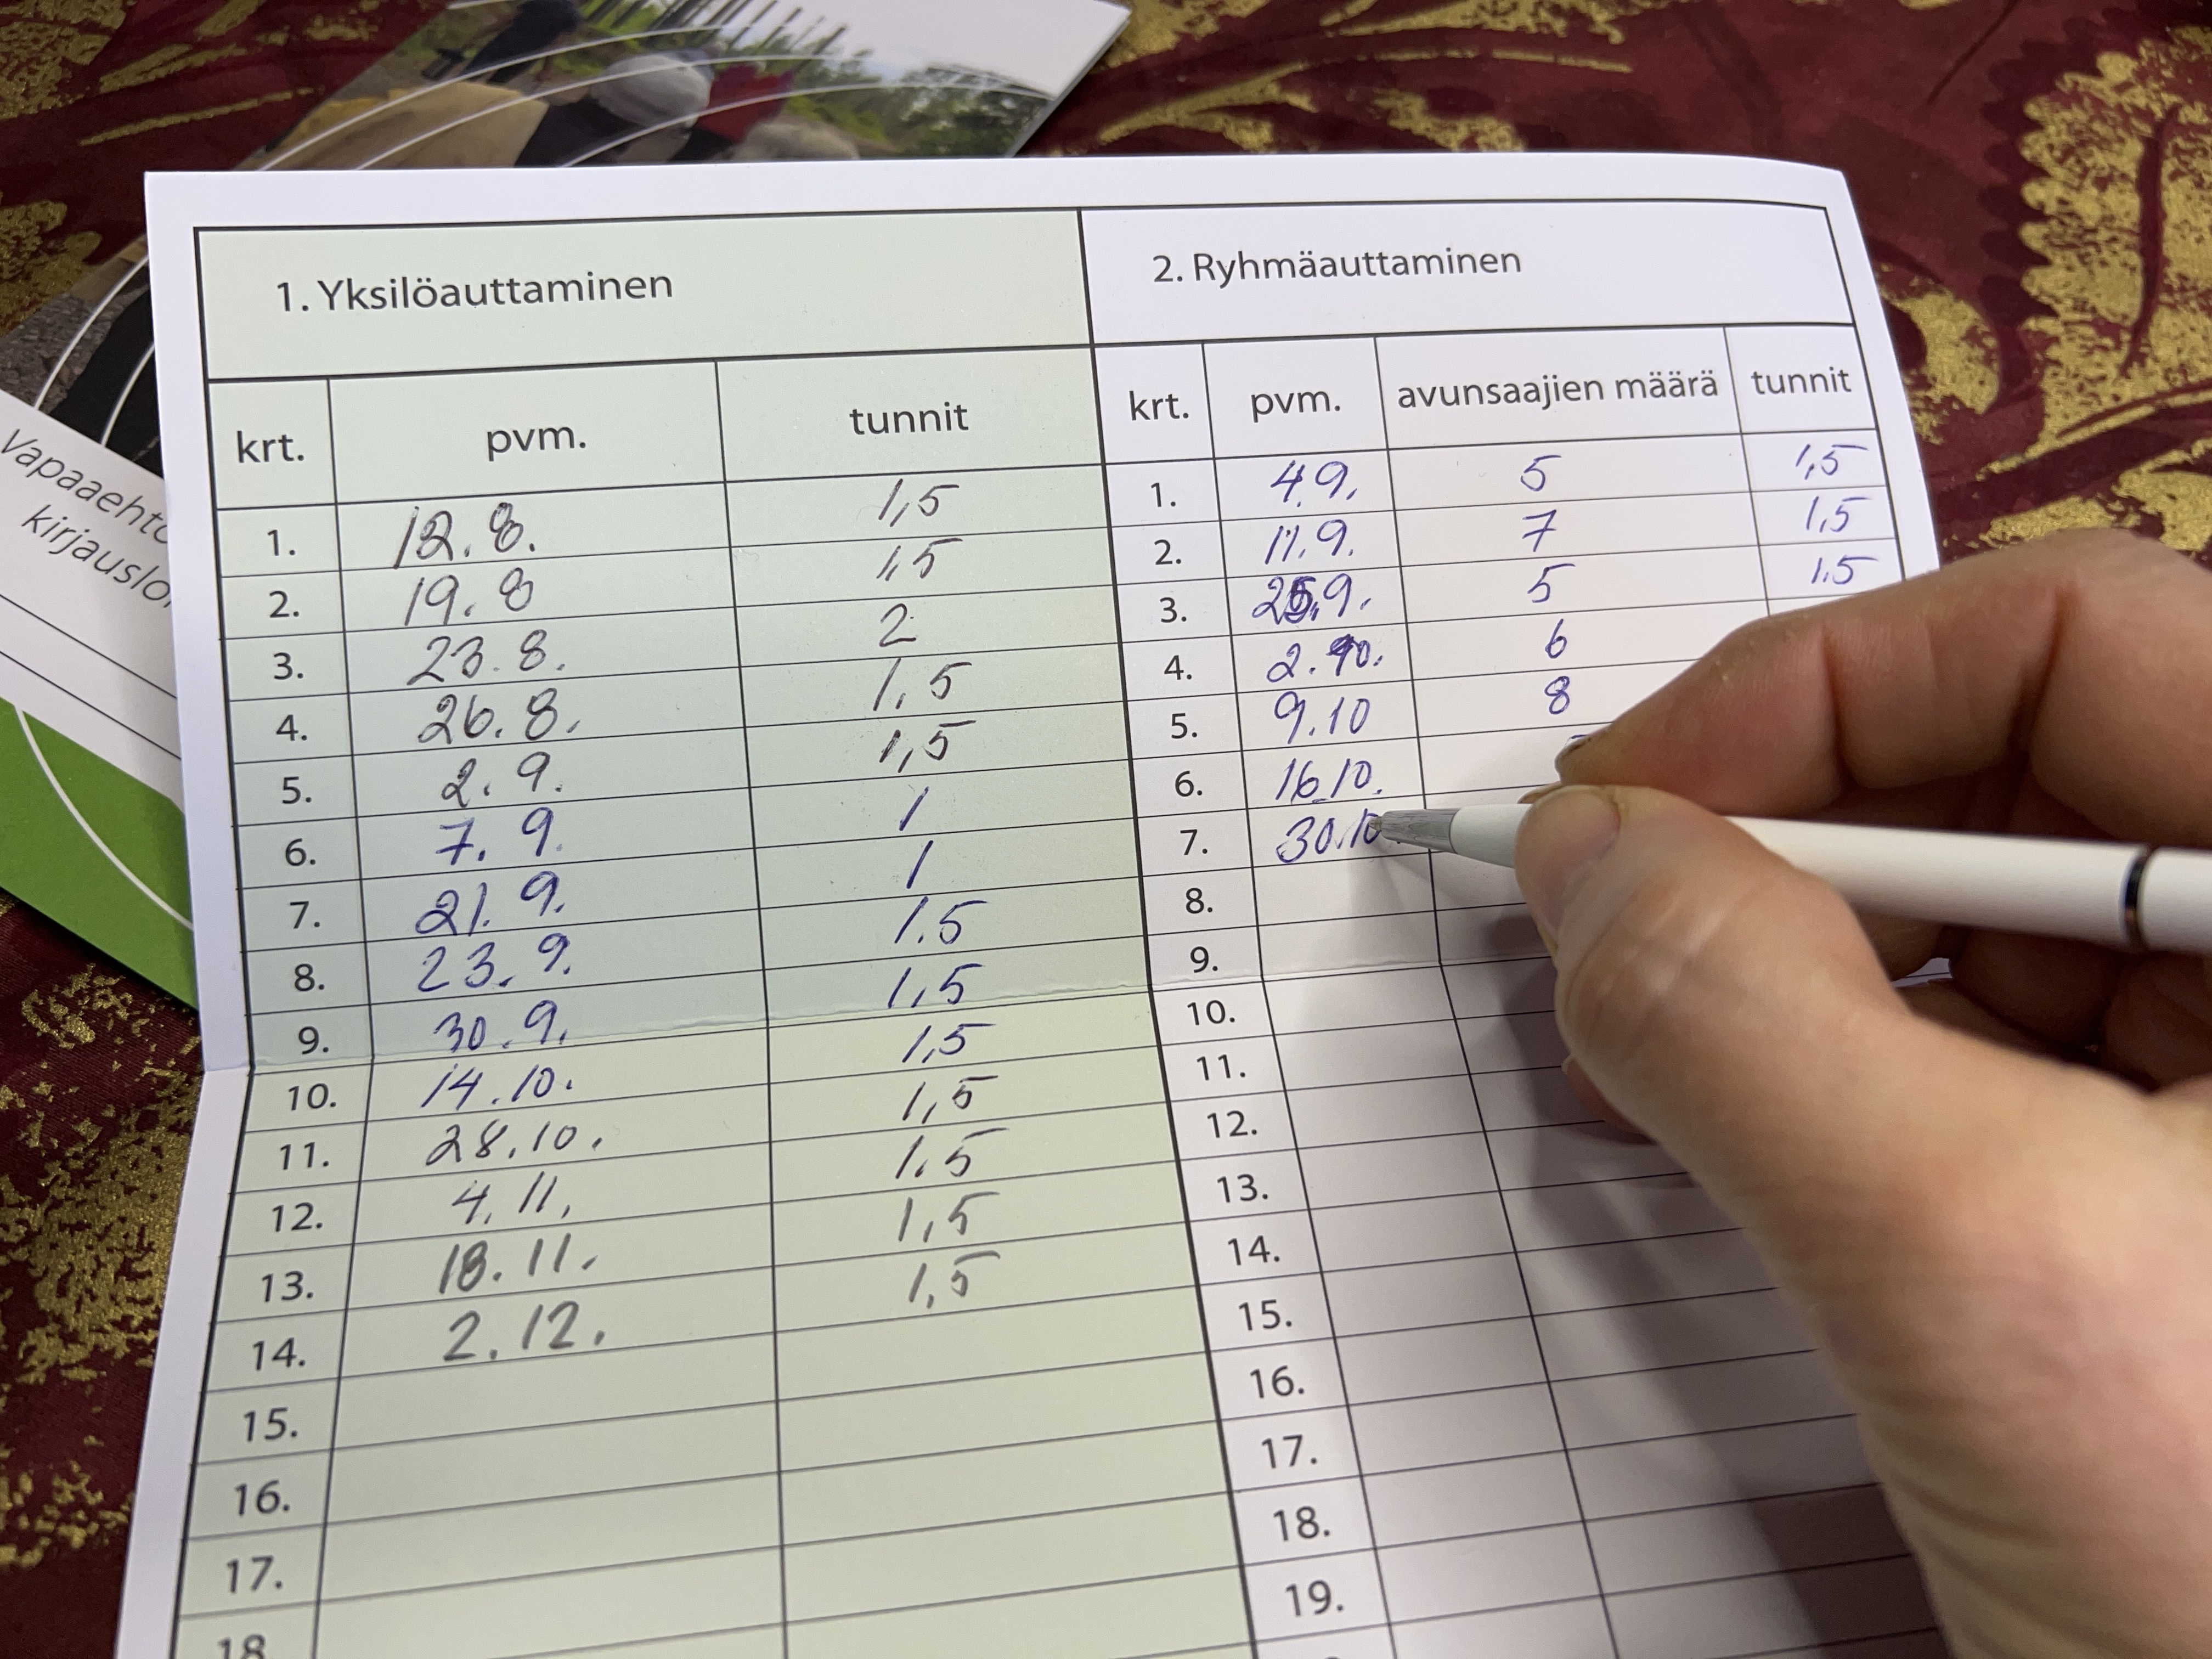 Vapaaehto
kirjauslo
1. Yksilöauttaminen 2. Ryhmäauttaminen
krt. pvm. tunnit krt. pvm. avunsaajien määrä tunnit
1. 12.8. 1,5 1. 4.9. 5 1,5
2. 19.8 1,5 2. 11.9. 7 1,5
3. 23.8. 2 3. 25.9. 5 1.5
4. 26.8. 1,5 4. 2.10. 6
5. 2.9. 1,5 5. 9.10 8
6. 7.9. 1 6. 16.10.
7. 21.9. 1 7. 30.10
8. 23.9. 1.5 8.
9. 30.9. 1,5 9.
10. 14.10. 1,5 10.
11. 28.10. 1,5 11.
12. 4.11. 1.5 12.
13. 18.11. 1,5 13.
14. 2.12. 1,5 14.
15. 15.
16. 16.
17. 17.
18. 18.
19.